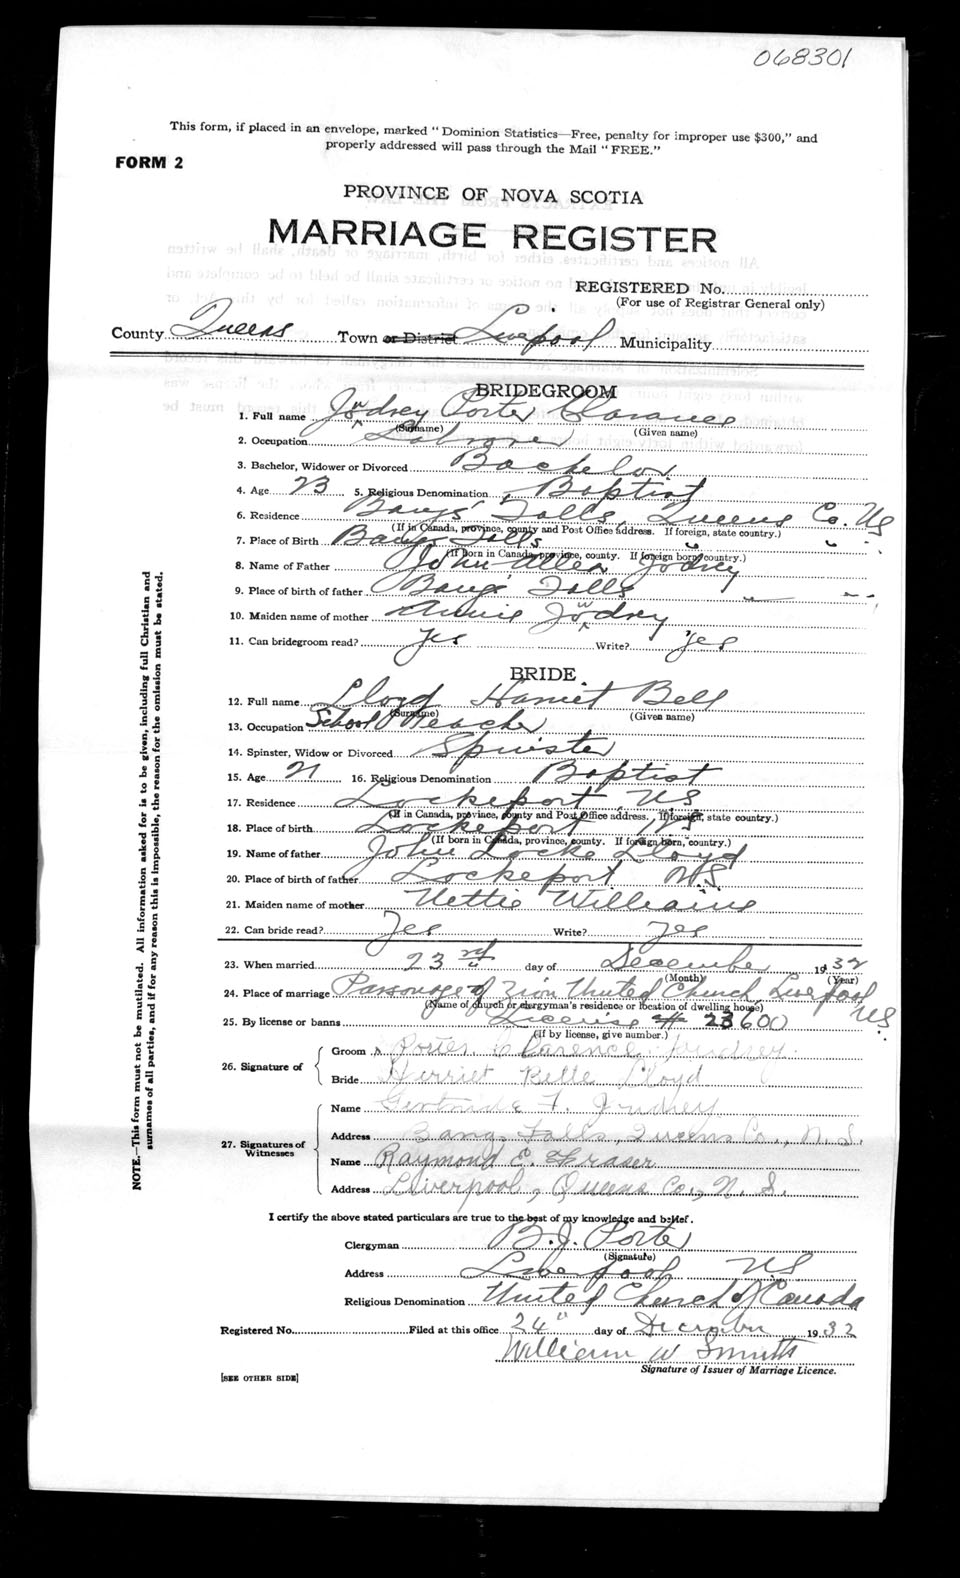 068301
This form, if placed in an envelope, marked " Dominion Statistics—Free, penalty for improper use $300," and
properly addressed will pass through the Mail " FREE."
FORM 2
PROVINCE OF NOVA SCOTIA
MARRIAGE REGISTER
REGISTERED No.
(For use of Registrar General only)
County Queens Town or District Liverpool Municipality
BRIDEGROOM
1. Full name Jowdrey Porter Clarance
(Surname) (Given name)
2. Occupation Labourer
3. Bachelor, Widower or Divorced Bachelor
4. Age 23 5. Religious Denomination Baptist
6. Residence Bangs' Falls, Queens Co. NS
(If in Canada, province, county and Post Office address. If foreign, state country.)
7. Place of Birth Bangs Falls " "
(If born in Canada, province, county. If foreign born, country.)
8. Name of Father John Allen Jodrey
9. Place of birth of father Bangs' Falls
10. Maiden name of mother Annie Jowdrey
11. Can bridegroom read? Yes Write? Yes
BRIDE
12. Full name Lloyd Harriet Bell
(Surname) (Given name)
13. Occupation School Teacher
14. Spinster, Widow or Divorced Spinster
15. Age 21 16. Religious Denomination Baptist
17. Residence Lockeport, NS
(If in Canada, province, county and Post Office address. If foreign, state country.)
18. Place of birth Lockeport NS
(If born in Canada, province, county. If foreign born, country.)
19. Name of father John Locke Lloyd
20. Place of birth of father Lockeport N.S
21. Maiden name of mother Nettie Williams
22. Can bride read? Yes Write? Yes
23. When married 23rd day of December 1932
(Month) (Year)
24. Place of marriage Parsonage of Zion United Church, Liverpool NS.
(Name of church or clergyman's residence or location of dwelling house)
25. By license or banns License # 23600
(If by license, give number.)
26. Signature of
Groom Porter Clarence Jodrey.
Bride Harriet Belle Lloyd
27. Signatures of Witnesses
Name Gertrude F. Jodrey
Address Bangs Falls, Queens Co., N.S.
Name Raymond E. Fraser
Address Liverpool, Queens Co., N.S.
I certify the above stated particulars are true to the best of my knowledge and belief.
Clergyman B. J. Porter
(Signature)
Address Liverpool NS
Religious Denomination United Church of Canada
Registered No. Filed at this office 24" day of December 1932
William W Smith
Signature of Issuer of Marriage Licence.
[SEE OTHER SIDE]
NOTE.—This form must not be mutilated. All information asked for is to be given, including full Christian and
surnames of all parties, and if for any reason this is impossible, the reason for the omission must be stated.